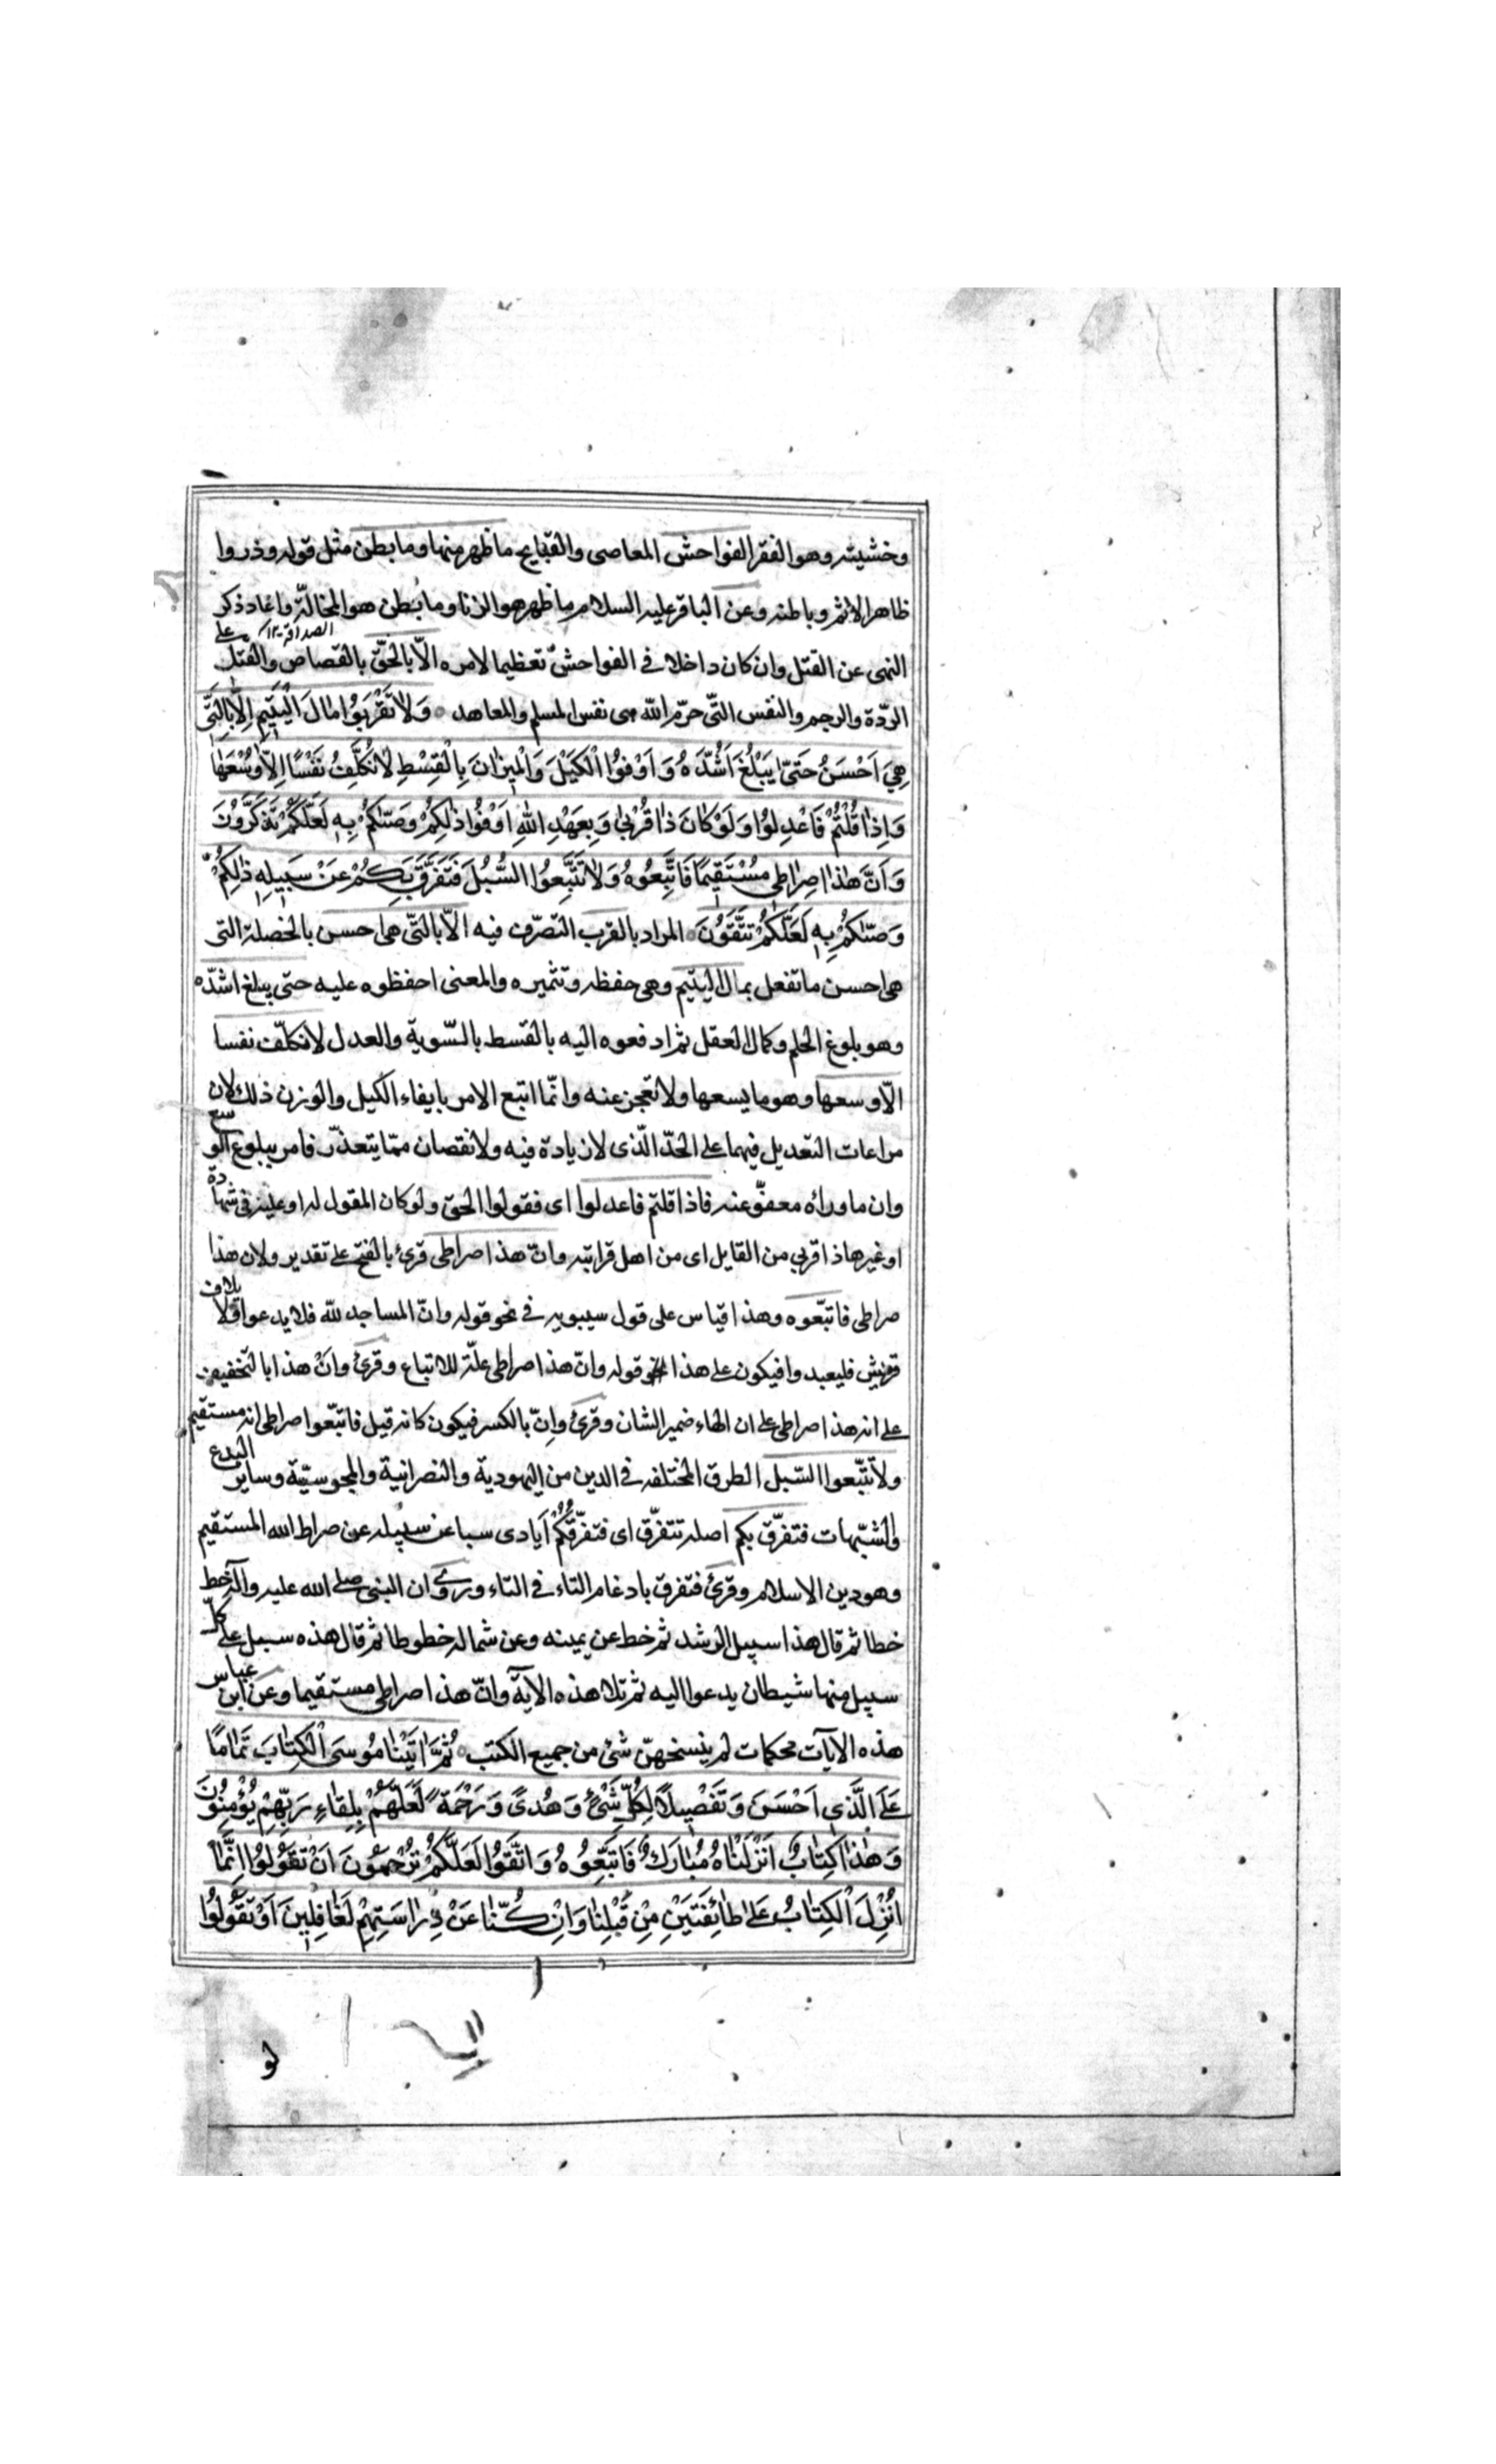 وخشيته وهو الفقر الفواحش المعاصى والقبايح ما ظهر منها وما بطن مثل قوله وذروا
ظاهر الاثم وباطنه وعن الباقر عليه السلام ما ظهر هو الزنا وما بطن هو المخالّة واعاد ذكر
الصداقة ١٢
النهى عن القتل وان كان داخلا فى الفواحش تعظيما لامره الّا بالحقّ بالقصاص والقتل على
الردّة والرجم والنفس التّى حرّم الله هى نفس المسلم والمعاهد ۝ وَلَا تَقْرَبُوا مَالَ الْيَتِيمِ اِلَّا بِالَّتِي
هِيَ اَحْسَنُ حَتّىٰ يَبْلُغَ اَشُدَّهُ وَاَوْفُوا الْكَيْلَ وَالْمِيزَانَ بِالْقِسْطِ لَا نُكَلِّفُ نَفْسًا اِلَّا وُسْعَهَا
وَاِذَا قُلْتُمْ فَاعْدِلُوا وَلَوْ كَانَ ذَا قُرْبىٰ وَبِعَهْدِ اللهِ اَوْفُوا ذٰلِكُمْ وَصّٰكُمْ بِهِ لَعَلَّكُمْ تَذَكَّرُونَ
وَاَنَّ هٰذَا صِرَاطِى مُسْتَقِيمًا فَاتَّبِعُوهُ وَلَا تَتَّبِعُوا السُّبُلَ فَتَفَرَّقَ بِكُمْ عَنْ سَبِيلِهِ ذٰلِكُمْ
وَصّٰكُمْ بِهِ لَعَلَّكُمْ تَتَّقُونَ ۝ المراد بالقرب التصرّف فيه الّا بالتّى هى احسن بالخصلة التى
هى احسن ما تفعل بمال اليتيم وهى حفظه وتثميره والمعنى احفظوه عليه حتى يبلغ اشدّه
وهو بلوغ الحلم وكمال العقل ثم ادفعوه اليه بالقسط بالسّوية والعدل لا نكلّف نفسا
الّا وسعها وهو ما يسعها ولا تعجز عنه وانّما اتبع الامر بايفاء الكيل والوزن ذلك لان
مراعات التعديل فيهما على الحدّ الّذى لا زيادة فيه ولا نقصان ممّا يتعذّر فامر ببلوغ الوسع
وان ما وراءه معفوّ عنه فاذا قلتم فاعدلوا اى فقولوا الحق ولو كان المقول له او عليه فى شهادة
او غيرها ذا قربى من القايل اى من اهل قرابته وانّ هذا صراطى قرئ بالفتح على تقدير ولان هذا
صراطى فاتبّعوه وهذا قياس على قول سيبويه فى نحو قوله وانّ المساجد لله فلا يدعوا ولايلاف
قريش فليعبدوا فيكون على هذا قوله وانّ هذا صراطى علّة للاتباع وقرئ وانْ هذا بالتخفيف
على انه هذا صراطى على ان الهاء ضمير الشان وقرئ وإنّ بالكسر فيكون كانه قيل فاتبّعوا صراطى انه مستقيم
ولا تتبّعوا السّبل الطرق المختلفه فى الدين من اليهودية والنصرانية والمجوسيّة وساير البدع
والشبّهات فتفرّق بكم اصله تتفرّق اى فتفرّقكُمْ اَيادى سبا عن سبيله عن صراط الله المستقيم
وهو دين الاسلام وقرئ فتفرق بادغام التاء فى التاء وروى ان النبى صلى الله عليه وآله خط
خطا ثم قال هذا سبيل الرشد ثم خط عن يمينه وعن شماله خطوطا ثم قال هذه سبل على كلّ
سبيل منها شيطان يدعوا اليه ثم تلا هذه الآية وانّ هذا صراطى مستقيما وعن ابن عباس
هذه الآيات محكمات لم ينسخهنّ شئ من جميع الكتب ۝ ثُمَّ اٰتَيْنَا مُوسَى الْكِتَابَ تَمَامًا
عَلَى الَّذِى اَحْسَنَ وَتَفْصِيلًا لِكُلِّ شَيْءٍ وَهُدىً وَرَحْمَةً لَعَلَّهُمْ بِلِقَاءِ رَبِّهِمْ يُؤْمِنُونَ
وَهٰذَا كِتَابٌ اَنْزَلْنَاهُ مُبَارَكٌ فَاتَّبِعُوهُ وَاتَّقُوا لَعَلَّكُمْ تُرْحَمُونَ اَنْ تَقُولُوا اِنَّمَا
اُنْزِلَ الْكِتَابُ عَلىٰ طَائِفَتَيْنِ مِنْ قَبْلِنَا وَاِنْ كُنَّا عَنْ دِرَاسَتِهِمْ لَغَافِلِينَ اَوْ تَقُولُوا
لو